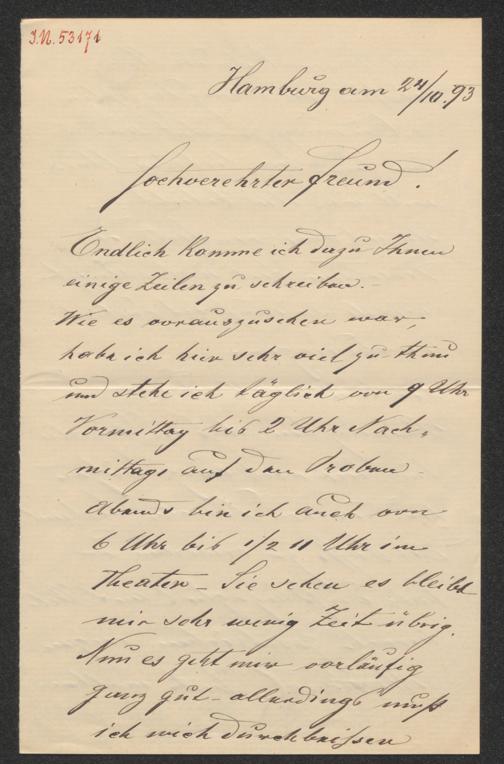 J.N. 53171
Hamburg am 24/10. 93
Hochverehrter Freund!
Endlich komme ich dazu Ihnen
einige Zeilen zu schreiben. -
Wie es vorauszusehen war,
habe ich hier sehr viel zu thun
und stehe ich täglich von 9 Uhr
Vormittag bis 2 Uhr Nach-
mittags auf den Proben -
Abends bin ich auch von
6 Uhr bis 1/2 11 Uhr im
Theater - Sie sehen es bleibt
mir sehr wenig Zeit übrig.
Nun es geht mir vorläufig
ganz gut - allerdings muß
ich mich durchbeißen